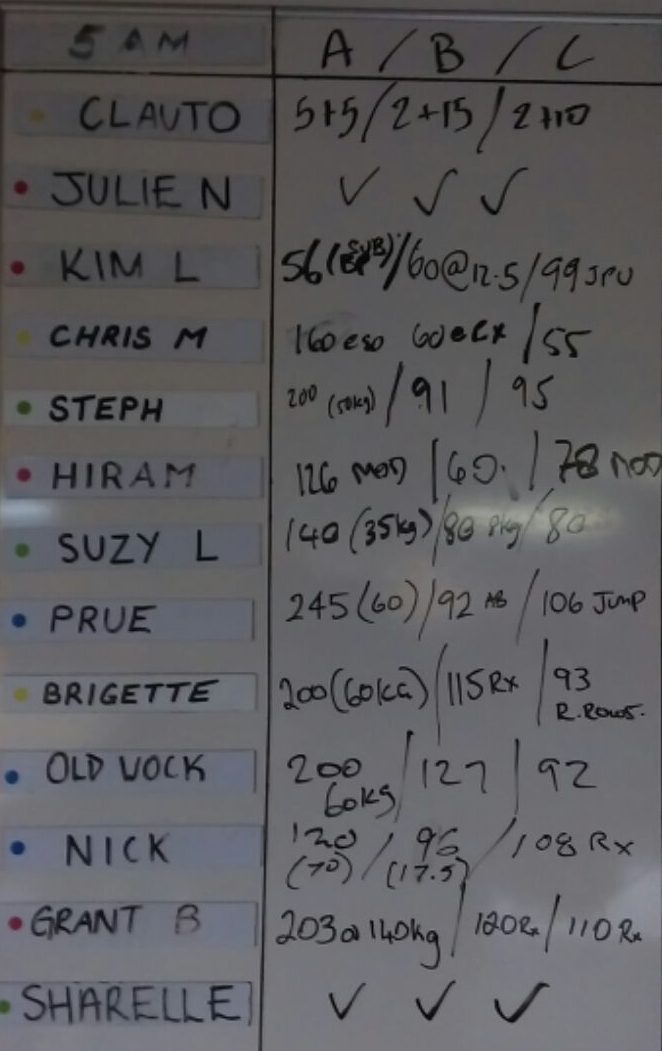 5 AM A / B / C
CLAUTO 5+5 / 2+15 / 2+10
JULIE N ✓ ✓ ✓
KIM L 56 (SUB) / 60@12.5 / 99 JPU
CHRIS M 160 @50 60 @ RX / 55
STEPH 200 (50kg) / 91 / 95
HIRAM 126 MOD / 60. / 78 MOD
SUZY L 140 (35kg) / 80 8kg / 80
PRUE 245 (60) / 92 AB / 106 JUMP
BRIGETTE 200 (60KG) / 115 Rx / 93
R.ROWS.
OLD VOCK 200 / 127 / 92
60kg
NICK 120 / 96 / 108 Rx
(70) (17.5)
GRANT B 203 @ 140kg / 120 Rx / 110 Rx
SHARELLE ✓ ✓ ✓